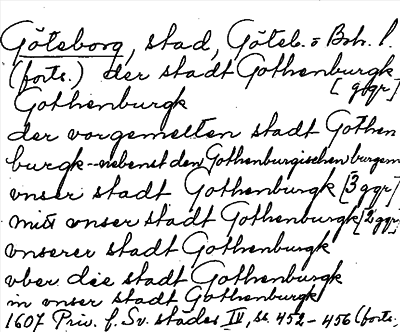 Göteborg, stad, Göteb. o Boh. l.
(forts.) der stadt Gothenburgk
[ ggr]
Gothenburgk
der vorgemelten stadt Gothen
burgk--nebenst den Gothenburgischen burgern
vnser stadt Gothenburgk [3 ggr]
mitt vnser stadt Gothenburgk [2 ggr]
vnserer stadt Gothenburgk
vber die stadt Gothenburgk
in vnser stadt Gothenburgk
1607 Priv. f. Sv. städer IV, ss 452-456 (forts.